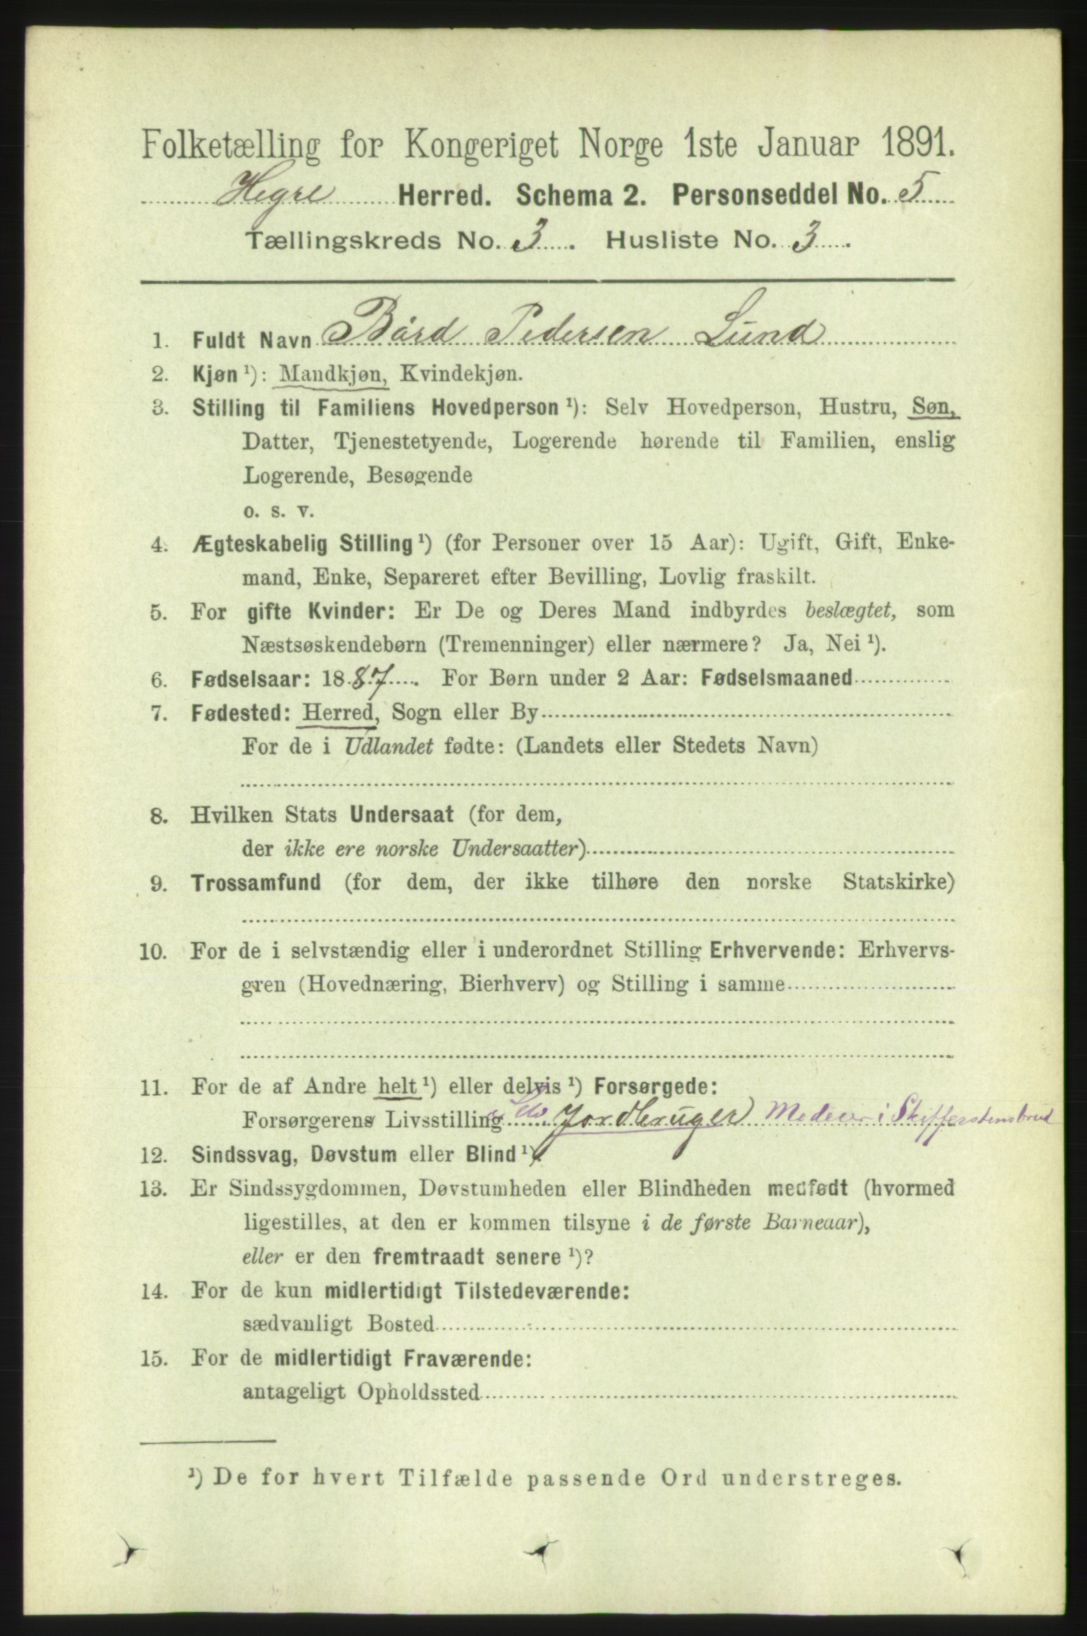 Folketælling for Kongeriget Norge 1ste Januar 1891.
Hegre Herred. Schema 2. Personseddel No. 5
Tællingskreds No. 3. Husliste No. 3.
1. Fuldt Navn Bård Pedersen Lund
2. Kjøn ¹): Mandkjøn, Kvindekjøn.
3. Stilling til Familiens Hovedperson ¹): Selv Hovedperson, Hustru, Søn,
Datter, Tjenestetyende, Logerende hørende til Familien, enslig
Logerende, Besøgende
o. s. v.
4. Ægteskabelig Stilling ¹) (for Personer over 15 Aar): Ugift, Gift, Enke-
mand, Enke, Separeret efter Bevilling, Lovlig fraskilt.
5. For gifte Kvinder: Er De og Deres Mand indbyrdes beslægtet, som
Næstsøskendebørn (Tremenninger) eller nærmere? Ja, Nei ¹).
6. Fødselsaar: 1887. For Børn under 2 Aar: Fødselsmaaned
7. Fødested: Herred, Sogn eller By
For de i Udlandet fødte: (Landets eller Stedets Navn)
8. Hvilken Stats Undersaat (for dem,
der ikke ere norske Undersaatter)
9. Trossamfund (for dem, der ikke tilhøre den norske Statskirke)
10. For de i selvstændig eller i underordnet Stilling Erhvervende: Erhvervs-
gren (Hovednæring, Bierhverv) og Stilling i samme
11. For de af Andre helt ¹) eller delvis ¹) Forsørgede:
Forsørgerens Livsstilling Jordbruger Medeier i Skifferstensbrud
12. Sindssvag, Døvstum eller Blind ¹)
13. Er Sindssygdommen, Døvstumheden eller Blindheden medfødt (hvormed
ligestilles, at den er kommen tilsyne i de første Barneaar),
eller er den fremtraadt senere ¹)?
14. For de kun midlertidigt Tilstedeværende:
sædvanligt Bosted
15. For de midlertidigt Fraværende:
antageligt Opholdssted
¹) De for hvert Tilfælde passende Ord understreges.